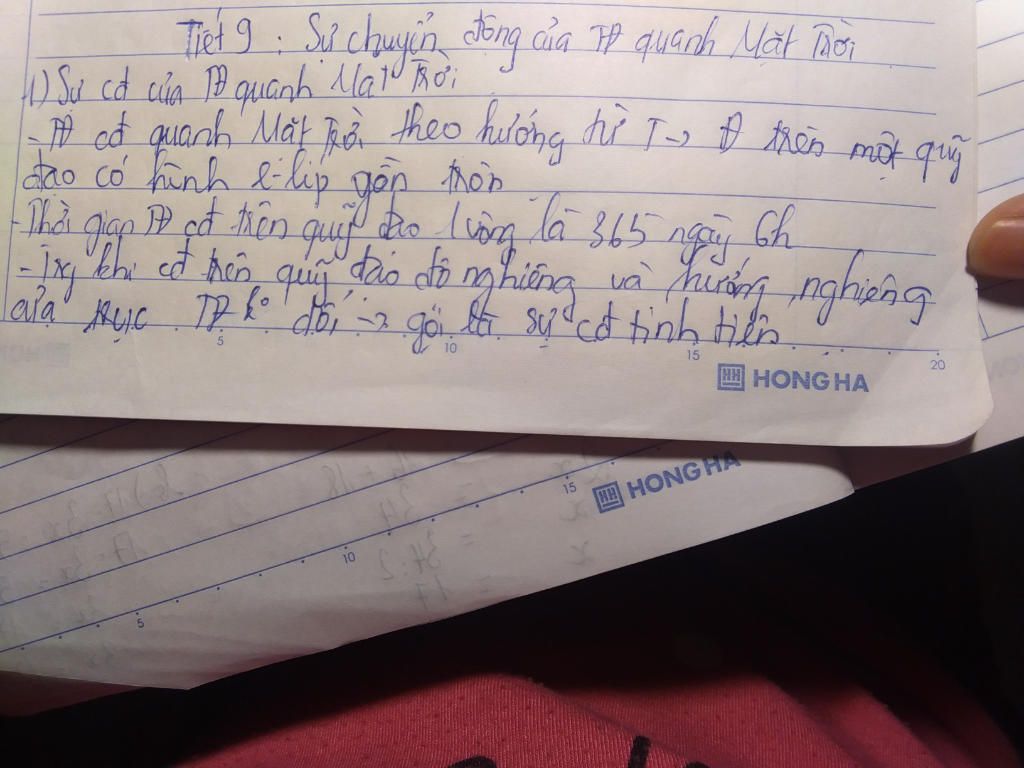 Tiết 9 : Sự chuyển động của TĐ quanh Mặt Trời
1) Sự cđ của TĐ quanh Mat Trời
- TĐ cđ quanh Mặt Trời theo hướng từ T -> Đ trên một quỹ
đạo có hình e-lip gần tròn
- Thời gian TĐ cđ trên quỹ đạo 1 vòng là 365 ngày 6h
- Trg khi cđ trên quỹ đạo độ nghiêng và hướng nghiêng
của trục TĐ k° đổi -> gọi là sự cđ tịnh tiến
5 10 15 20
HONG HA
15 HONG HA
10
5